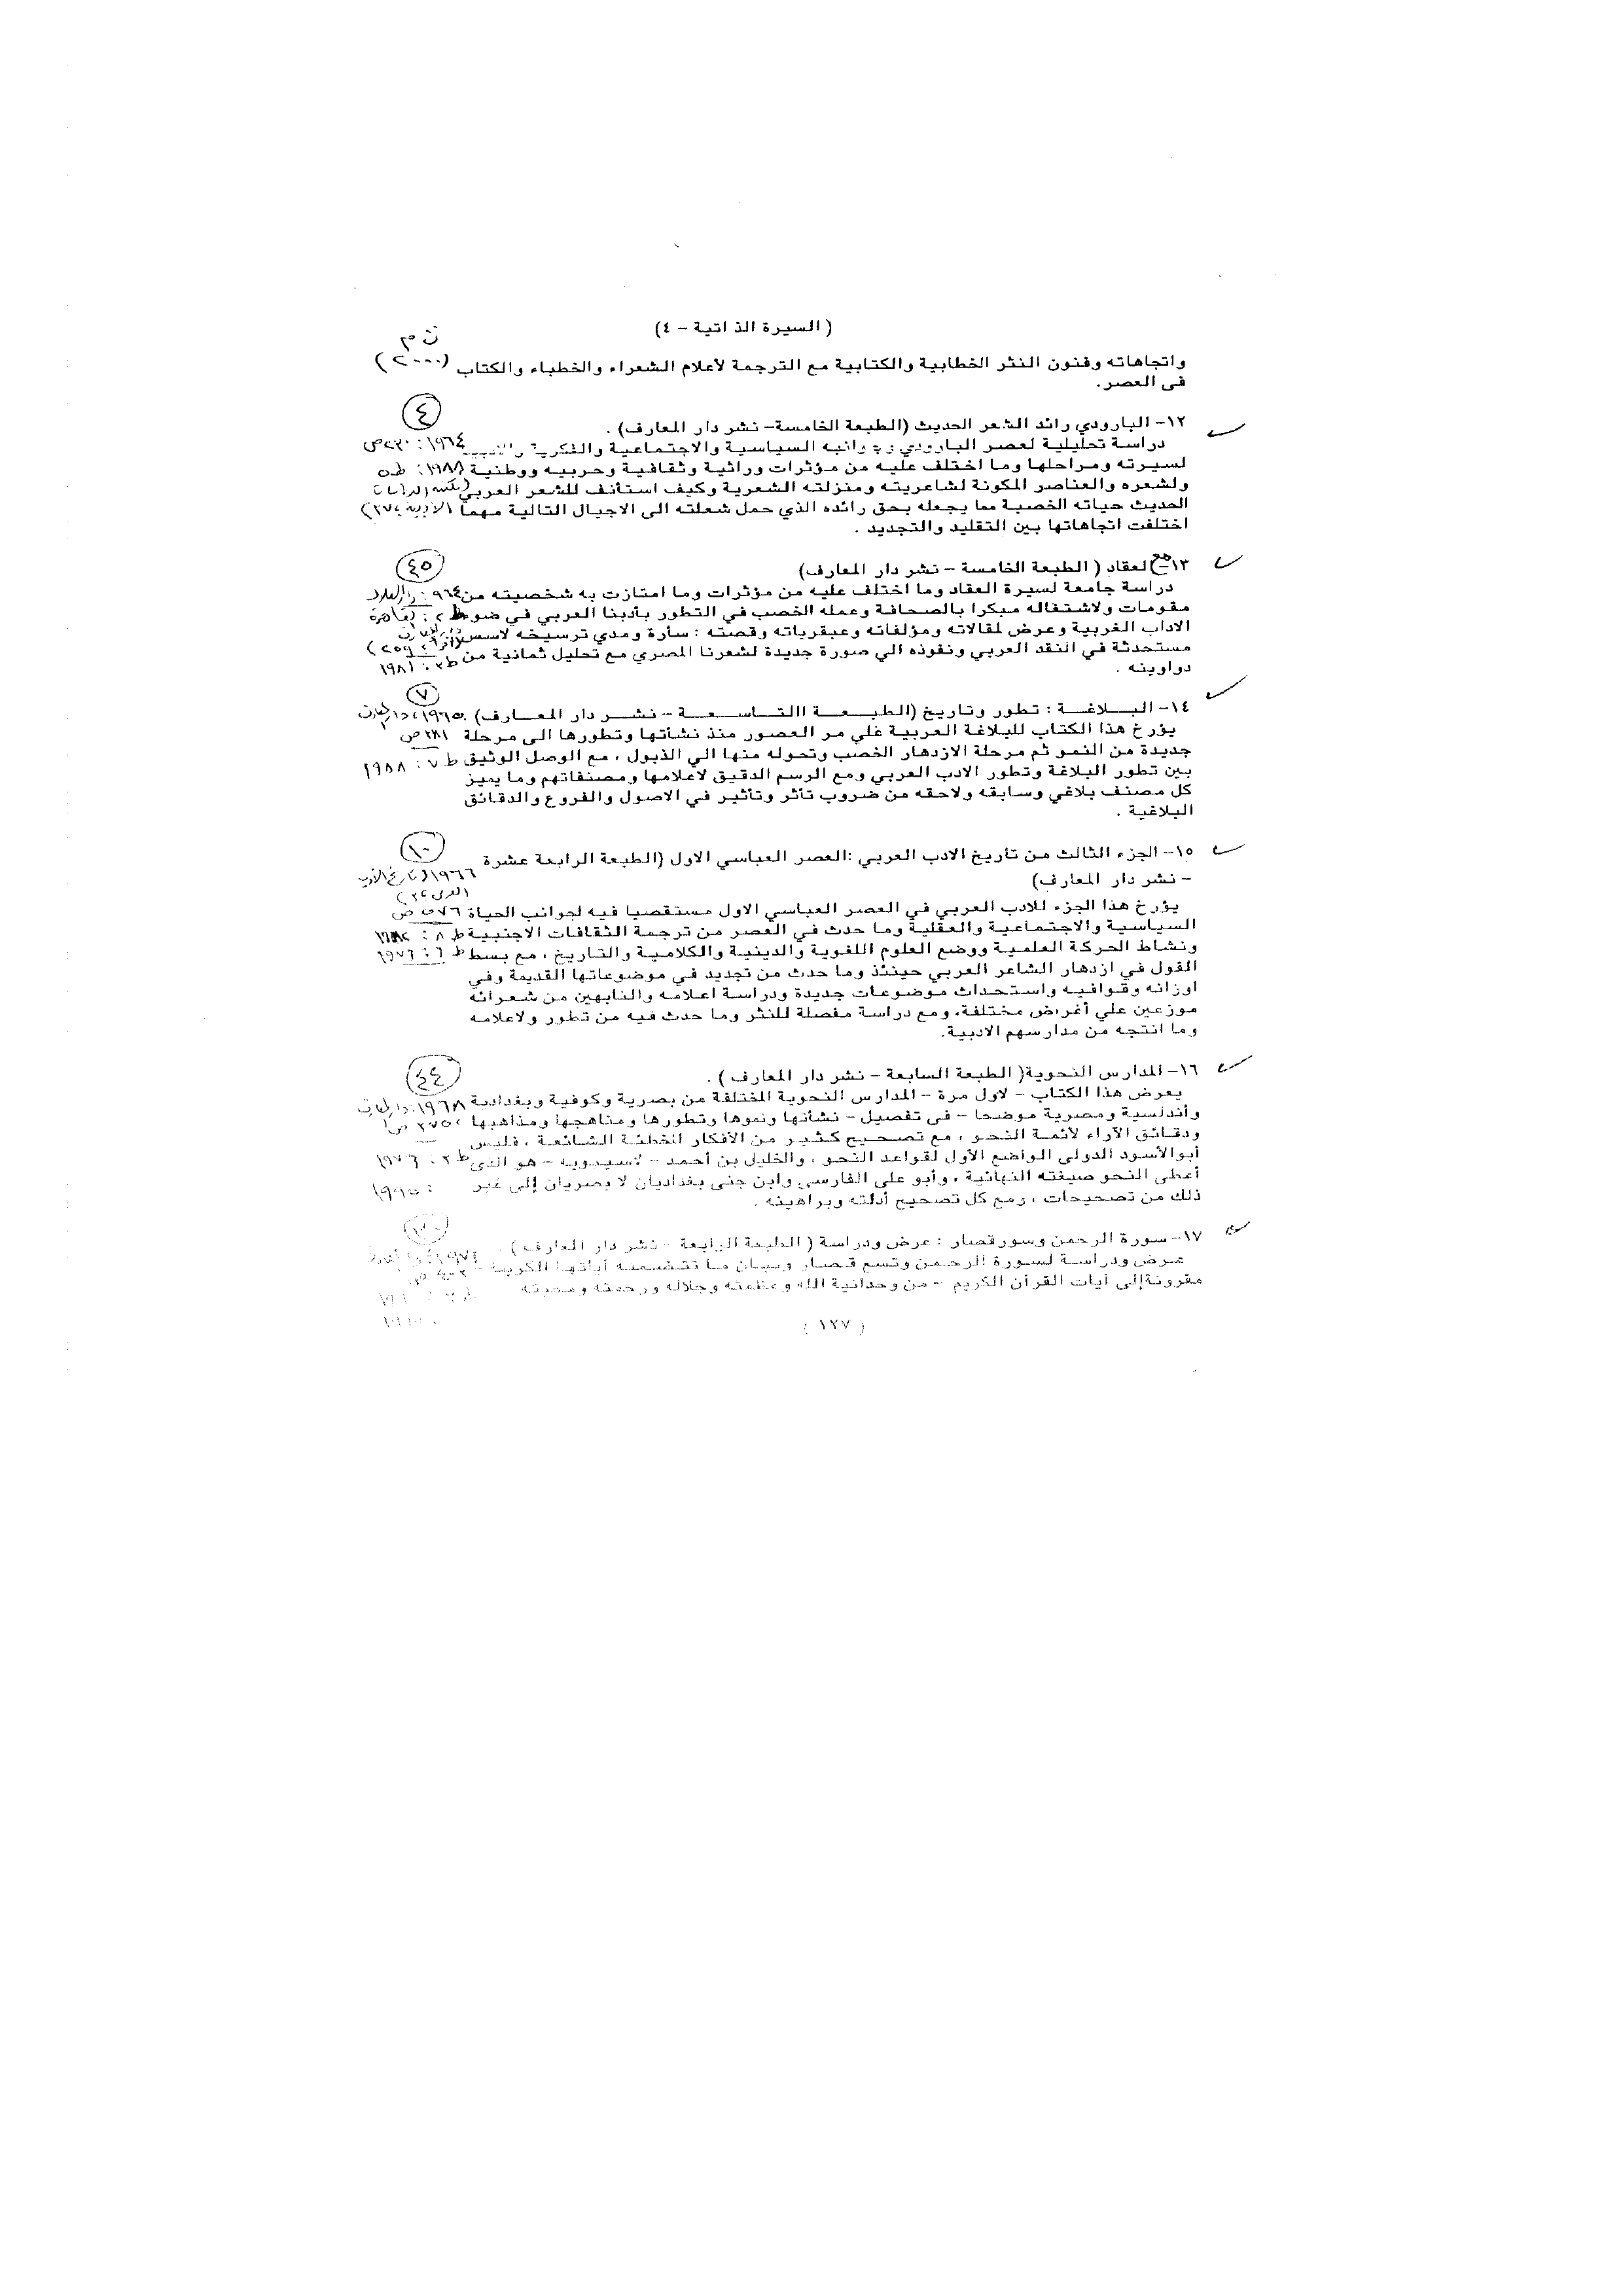 ( السيرة الذاتية - ٤)
ث م
واتجاهاته وفنون النثر الخطابية والكتابية مع الترجمة لأعلام الشعراء والخطباء والكتاب (٢٠٠٠)
فى العصر.
٤
١٢- البارودي رائد الشعر الحديث (الطبعة الخامسة- نشر دار المعارف) .
دراسة تحليلية لعصر البارودي وجوانبه السياسية والاجتماعية والفكرية ١٩٦٤ : ٢٣٠ ص
لسيرته ومراحلها وما اختلف عليه من مؤثرات وراثية وثقافية وحربيه ووطنية ١٩٨٨ : ط٥
ولشعره والعناصر المكونة لشاعريته ومنزلته الشعرية وكيف استأنف للشعر العربي (مكتبة الدراسات
الحديث حياته الخصبة مما يجعله بحق رائده الذي حمل شعلته الى الاجيال التالية مهما الأدبية
اختلفت اتجاهاتها بين التقليد والتجديد .
٤٥
١٣- مع العقاد ( الطبعة الخامسة - نشر دار المعارف)
دراسة جامعة لسيرة العقاد وما اختلف عليه من مؤثرات وما امتازت به شخصيته من ١٩٦٤
مقومات ولاشتغاله مبكرا بالصحافة وعمله الخصب في التطور بأدبنا العربي في ضوء ط ٢ : القاهرة
الاداب الغربية وعرض لمقالاته ومؤلفاته وعبقرياته وقصته : سارة ومدي ترسيخه لاسس
مستحدثة في النقد العربي ونفوذه الي صورة جديدة لشعرنا المصري مع تحليل ثمانية من ٢٥٩)
دواوينه . ط٣ : ١٩٨١
٧
١٤- البـلاغـة : تطور وتاريخ (الطبـعـة االتـاسـعـة - نشـر دار المعـارف) . ١٩٦٥ ، دار المعارف
يؤرخ هذا الكتاب للبلاغة العربية علي مر العصور منذ نشأتها وتطورها الى مرحلة ٣٨١ ص
جديدة من النمو ثم مرحلة الازدهار الخصب وتحوله منها الي الذبول ، مع الوصل الوثيق ط ٧ : ١٩٨٨
بين تطور البلاغة وتطور الادب العربي ومع الرسم الدقيق لاعلامها ومصنفاتهم وما يميز
كل مصنف بلاغي وسابقه ولاحقه من ضروب تأثر وتأثير في الاصول والفروع والدقائق
البلاغية .
١٠
١٥- الجزء الثالث من تاريخ الادب العربي :العصر العباسي الاول (الطبعة الرابعة عشرة
- نشر دار المعارف) ١٩٦٦ (تاريخ الأدب
العربى ٣)
يؤرخ هذا الجزء للادب العربي في العصر العباسي الاول مستقصيا فيه لجوانب الحياة ٥٧٦ ص
السياسية والاجتماعية والعقلية وما حدث في العصر من ترجمة الثقافات الاجنبية ط ٨ : ١٩٨٢
ونشاط الحركة العلمية ووضع العلوم اللغوية والدينية والكلامية والتاريخ ، مع بسط ط ٦ : ١٩٧٦
القول في ازدهار الشاعر العربي حينئذ وما حدث من تجديد في موضوعاتها القديمة وفي
اوزانه وقوافيه واستحداث موضوعات جديدة ودراسة اعلامه والنابهين من شعرائه
موزعين علي أغراض مختلفة، ومع دراسة مفصلة للنثر وما حدث فيه من تطور ولاعلامه
وما انتجه من مدارسهم الادبية.
٤٤
١٦- المدارس النحوية( الطبعة السابعة - نشر دار المعارف ) .
يعرض هذا الكتاب - لاول مرة - المدارس النحوية المختلفة من بصرية وكوفية وبغدادية ١٩٦٨ ، دار المعارف
وأندلسية ومصرية موضحا - فى تفصيل - نشأتها ونموها وتطورها ومناهجها ومذاهبها ، ٣٧٥ ص
ودقائق الآراء لأئمة النحو ، مع تصحيح كثير من الأفكار الخطئة الشائعة ، فليس
أبو الأسود الدولى الواضع الأول لقواعد النحو ، والخليل بن أحمد - لاسيبويه - هو الذى ط ٣ : ١٩٧٦
أعطى النحو صيغته النهائية ، وأبو على الفارسى وابن جنى بغداديان لا بصريان إلى غير
ذلك من تصحيحات ، ومع كل تصحيح أدلته وبراهينه .
١٧- سورة الرحمن وسور قصار : عرض ودراسة ( الطبعة الرابعة - نشر دار المعارف) .
عرض ودراسة لسورة الرحمن وتسع قصار وبيان ما تتضمنه آياتها الكريمة -
مقرونة إلى آيات القرآن الكريم - من وحدانية الله وعظمته وجلاله ورحمته ومحبته
( ١٢٧ )